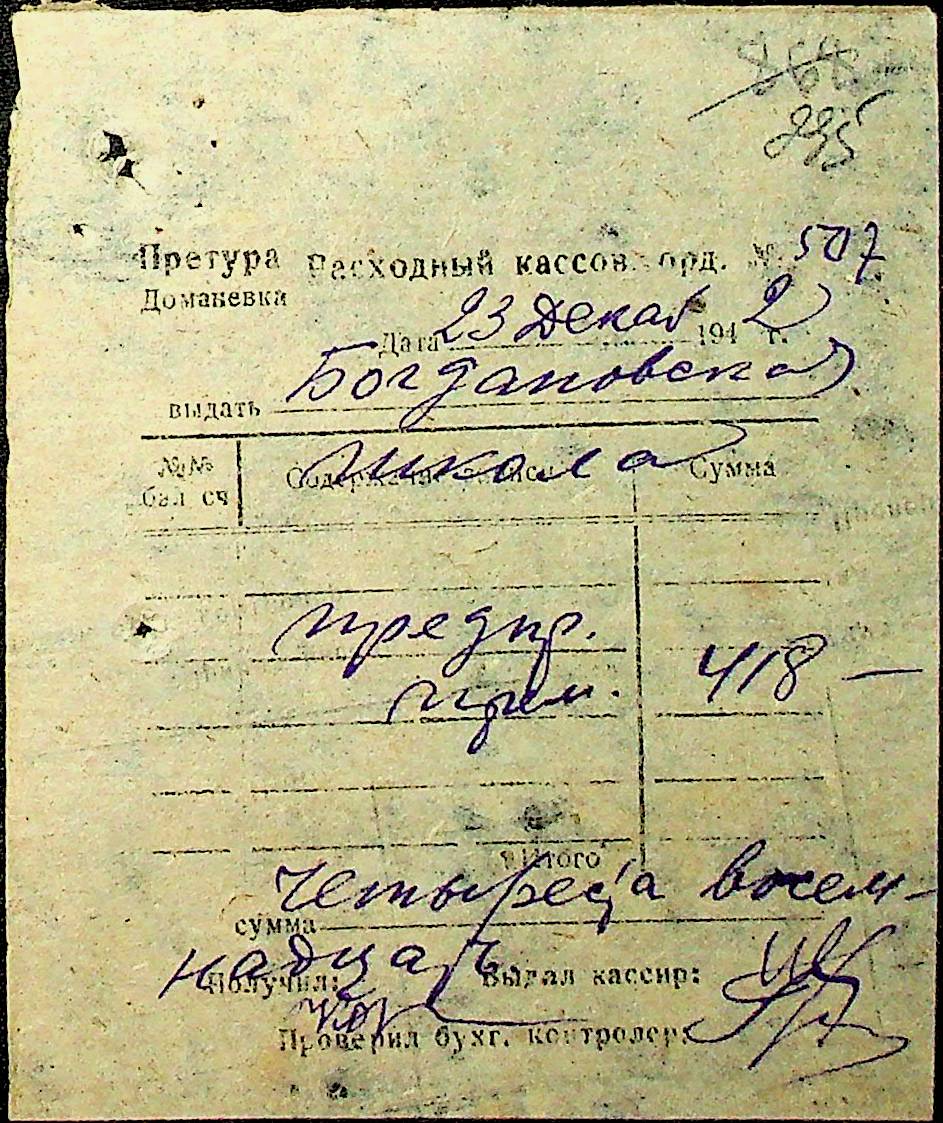 868
895
Претура Расходный кассов. орд. № 507
Доманевка
Дата 23 Декаб 1942 г.
выдать Богдановска
Школа
№№ бал сч Содержание записи Сумма
предпр.
прем. 418 —
Итого
сумма Четыреста восем-
надцать
Получил: Выдал кассир:
Проверил бухг. контролер: